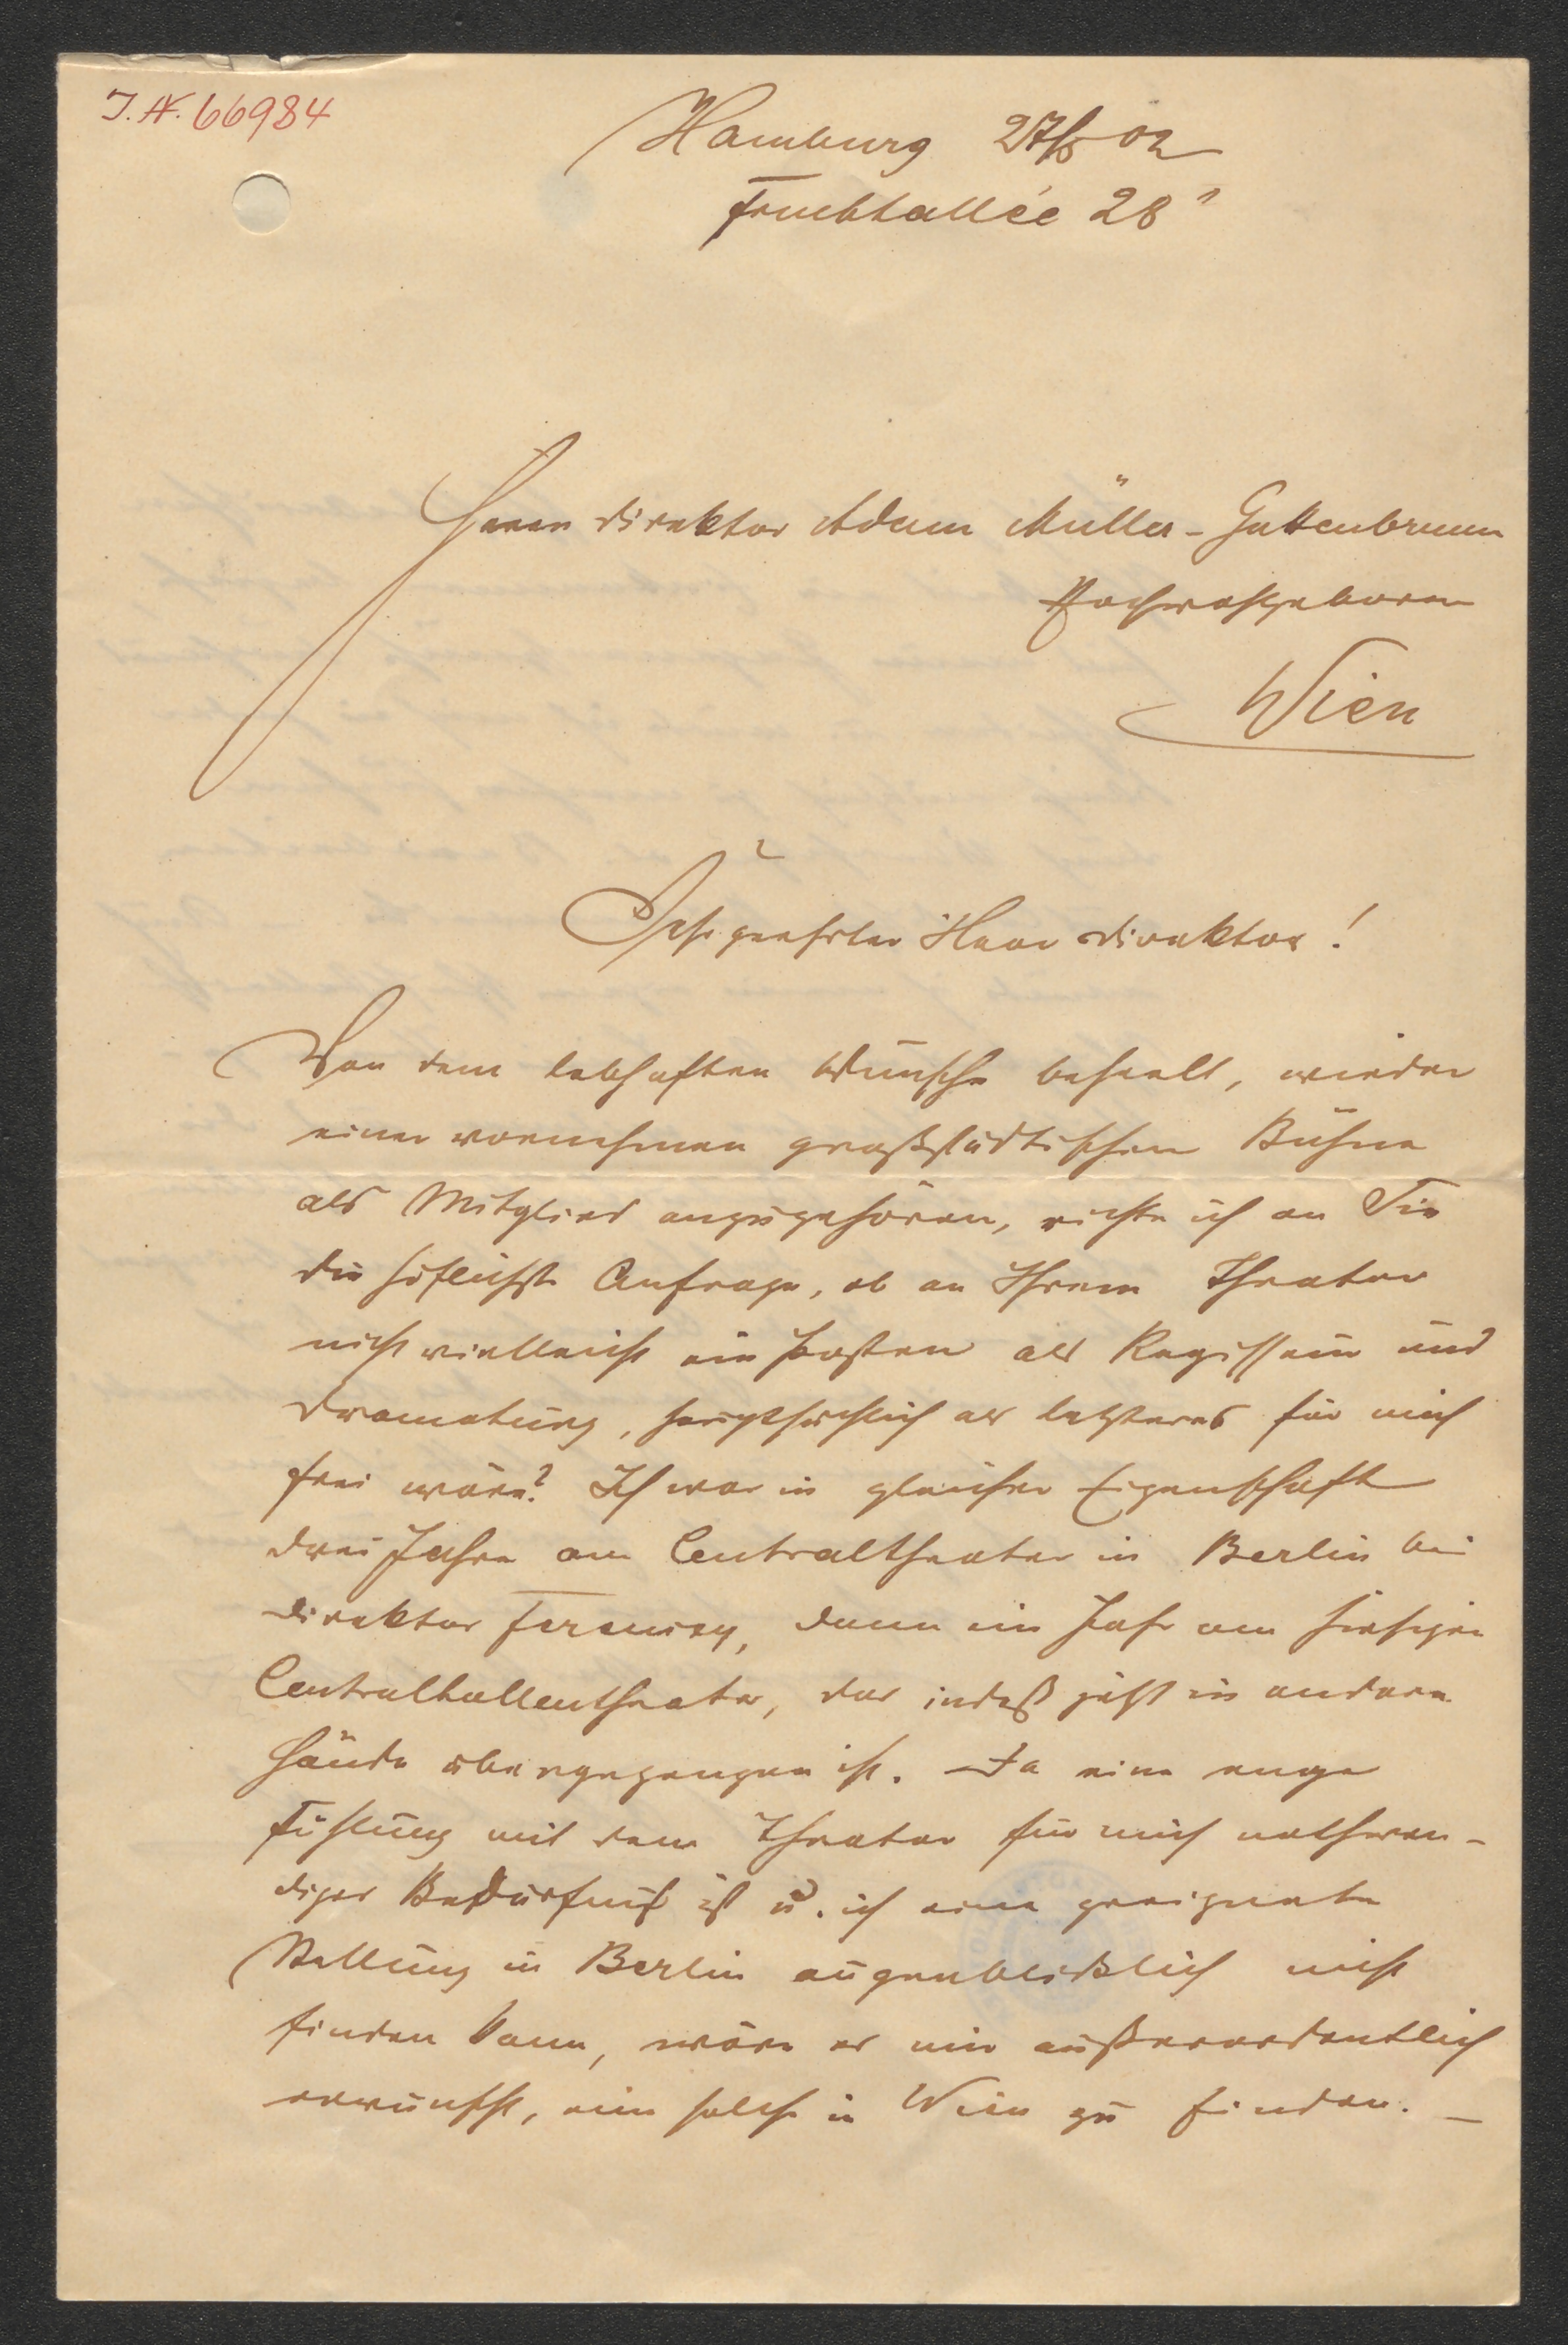 J. N. 66984
Hamburg 27/5 02
Fruchtallée 28 II
Herrn Direktor Adam Müller-Guttenbrunn
Hochwohlgeboren
Wien
Sehr geehrter Herr Direktor!
Von dem lebhaften Wunsche beseelt, wieder
einer vornehmen großstädtischen Bühne
als Mitglied anzugehören, richte ich an Sie
die höflichste Anfrage, ob an Ihrem Theater
nicht vielleicht ein Posten als Regisseur und
Dramaturg, hauptsächlich als letzteres für mich
frei wäre? Ich war in gleicher Eigenschaft
drei Jahre am Centraltheater in Berlin bei
Direktor Ferenczy, dann ein Jahr am hiesigen
Centralhallentheater, das indeß jetzt in andere
Hände übergegangen ist. Da eine enge
Fühlung mit dem Theater für mich nothwen-
diges Bedürfniß ist u. ich eine geeignete
Stellung in Berlin augenblicklich nicht
finden kann, wäre es mir außerordentlich
erwünscht, eine solche in Wien zu finden. —